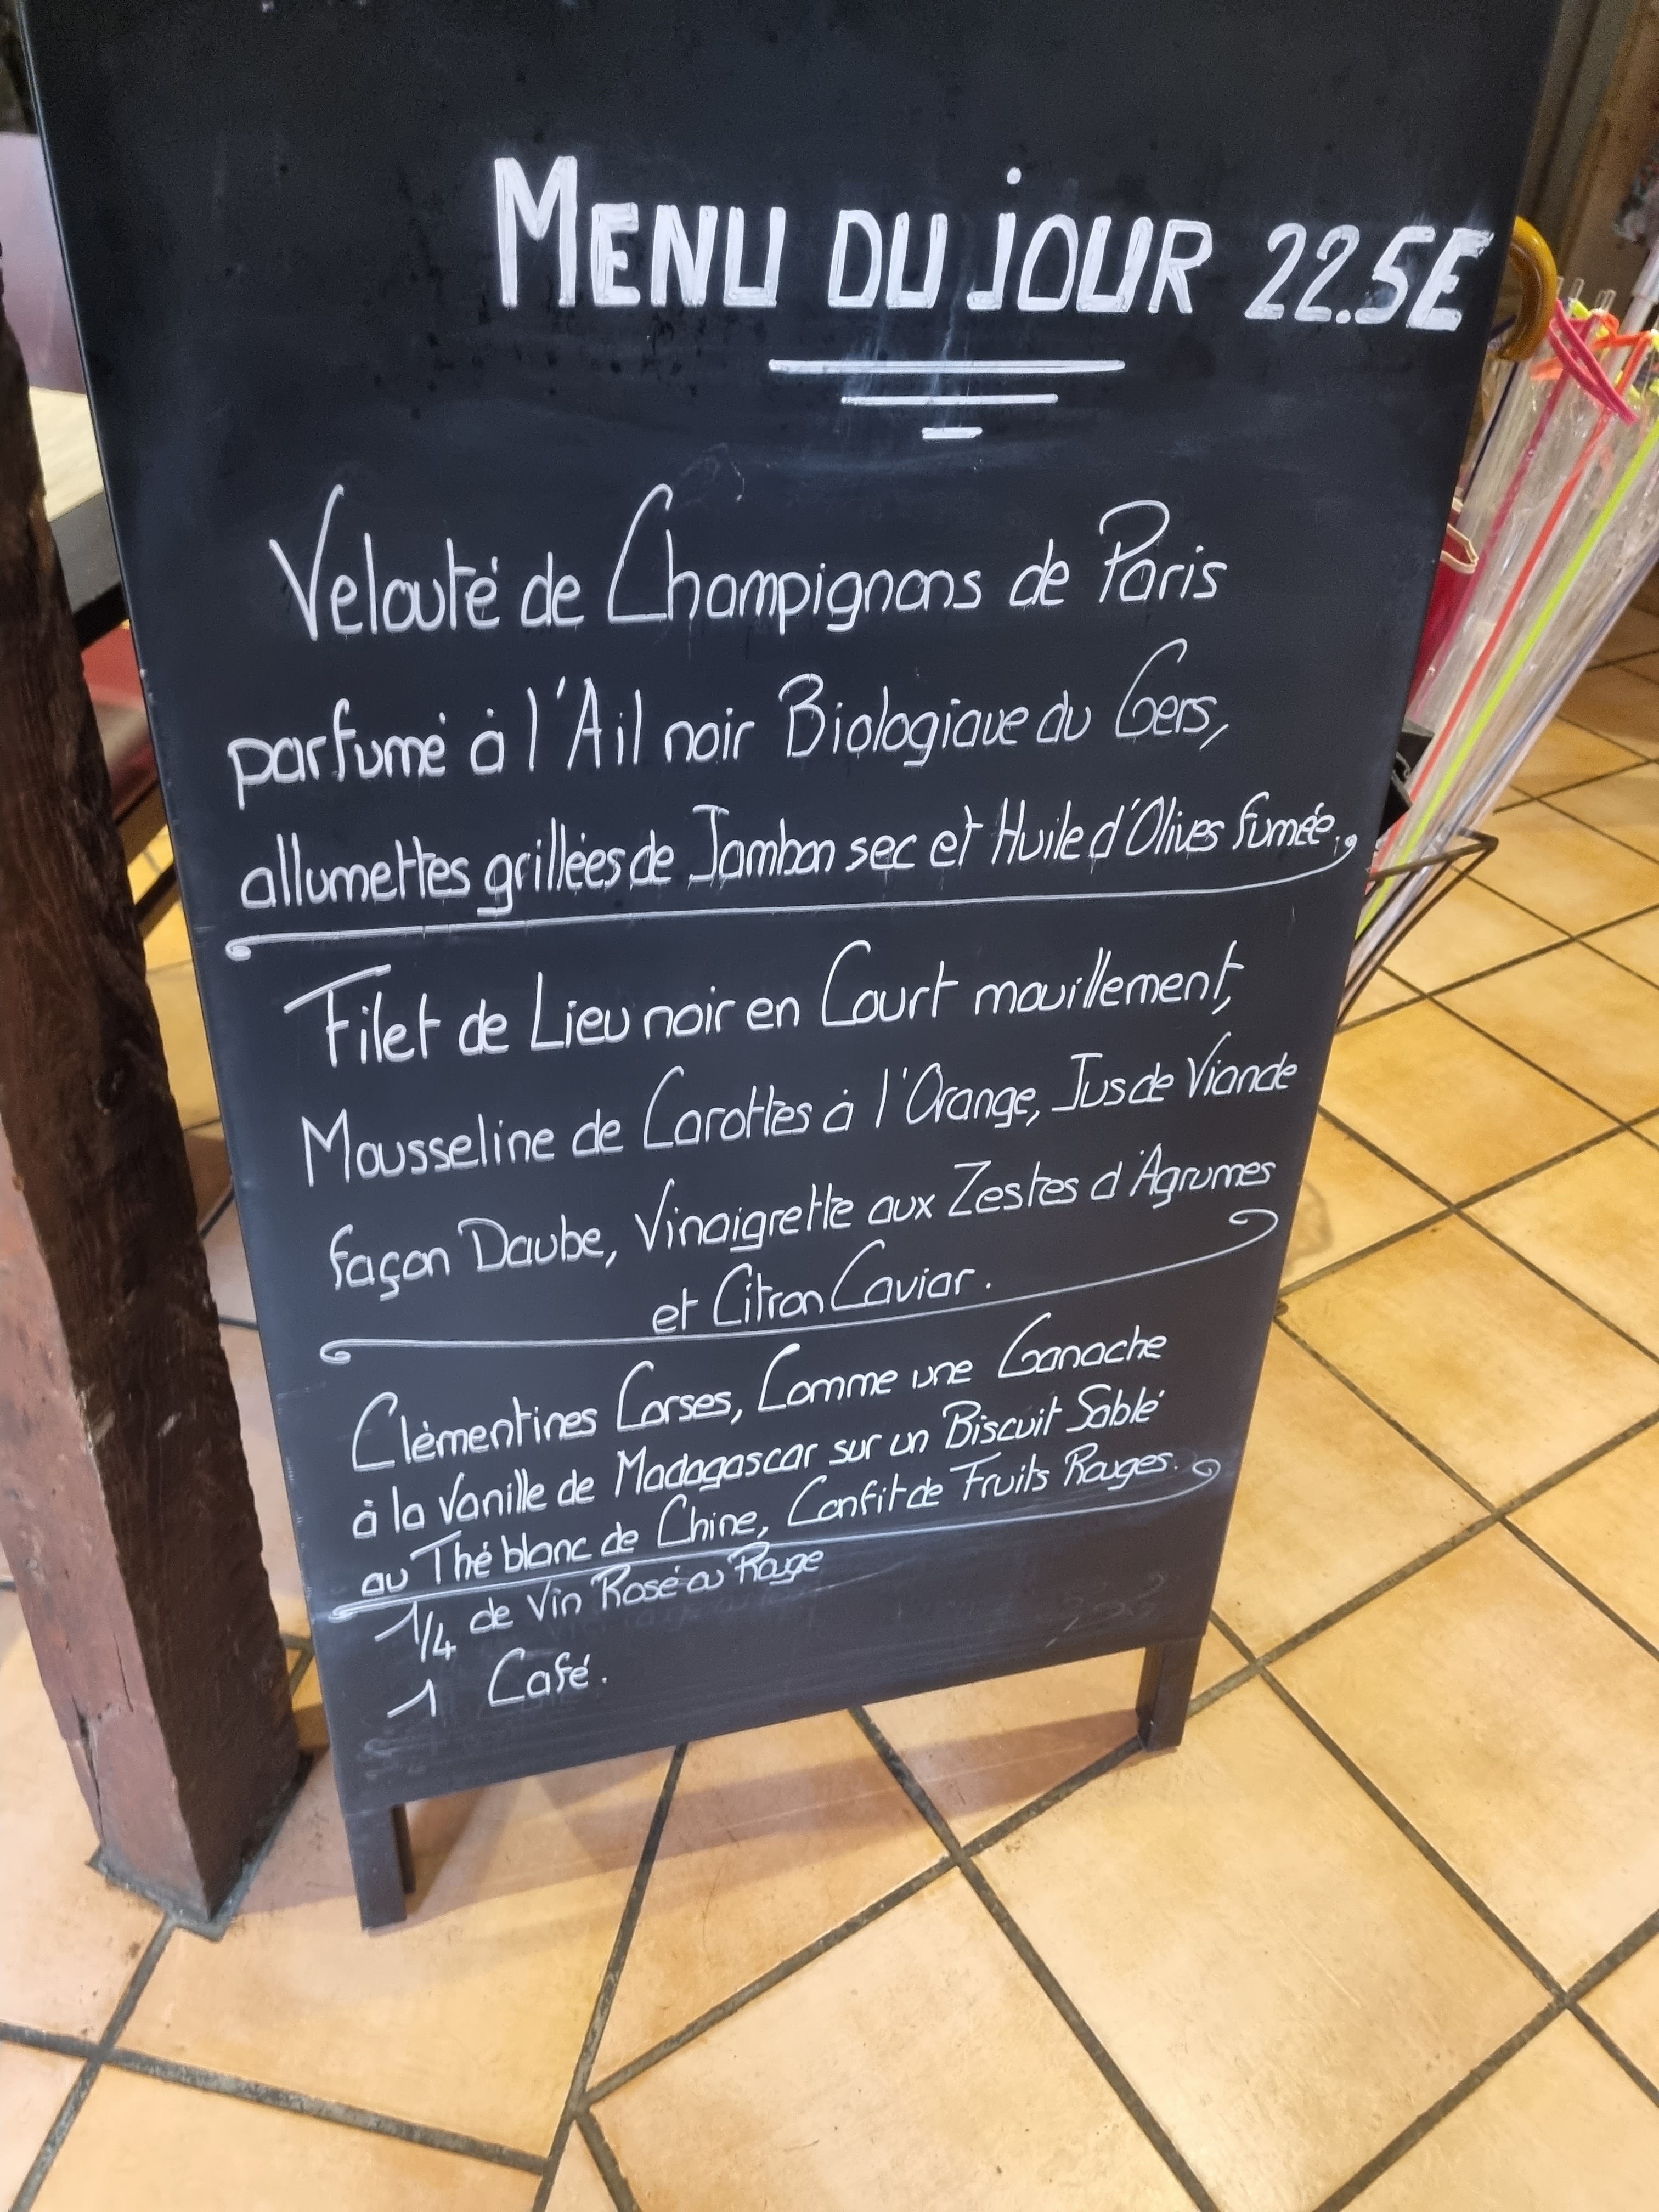 MENU DU JOUR 22.5E
Velouté de Champignons de Paris
parfumé à l'Ail noir Biologique du Gers,
allumettes grillées de Jambon sec et Huile d'Olives fumée.
Filet de Lieu noir en Court mouillement,
Mousseline de Carottes à l'Orange, Jus de Viande
façon Daube, Vinaigrette aux Zestes d'Agrumes
et Citron Caviar.
Clémentines Corses, Comme une Ganache
à la Vanille de Madagascar sur un Biscuit Sablé
au Thé blanc de Chine, Confit de Fruits Rouges.
1/4 de Vin Rosé ou Rouge
1 Café.